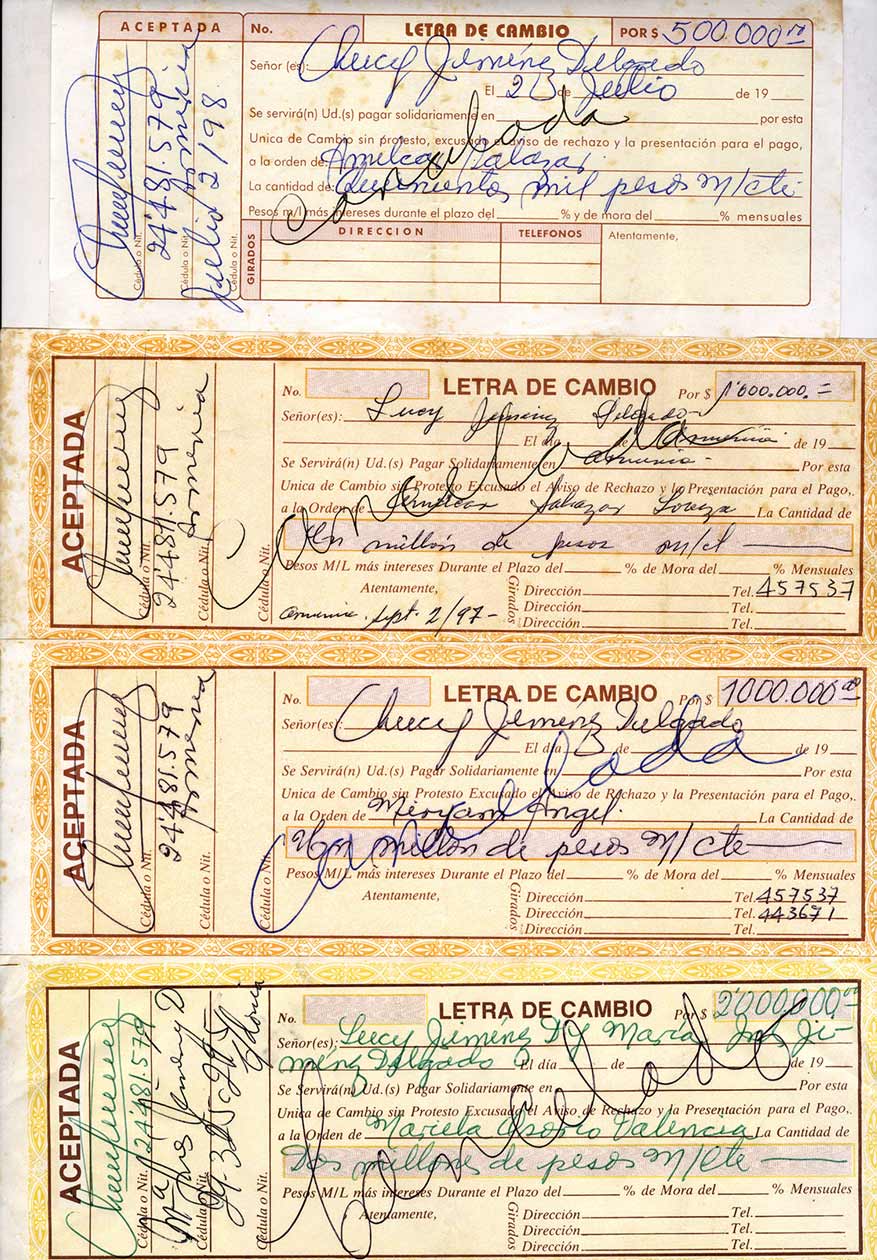 ACEPTADA
24'481.579
Armenia
Julio 2/98
Cédula o Nit.
Cédula o Nit.
Cédula o Nit.
No. LETRA DE CAMBIO POR $ 500.000 00
Señor (es): Lucy Jiménez Delgado
El 2 de Julio de 19
Se servirá(n) Ud.(s) pagar solidariamente en por esta
Unica de Cambio sin protesto, excusado el aviso de rechazo y la presentación para el pago,
a la orden de: Amilcar Salazar
La cantidad de: Quinientos mil pesos m/cte
Pesos m/l más intereses durante el plazo del % y de mora del % mensuales
Cancelada
GIRADOS
DIRECCION TELEFONOS Atentamente,
ACEPTADA
24'481.579
Armenia
Cédula o Nit.
Cédula o Nit.
Cédula o Nit.
No. LETRA DE CAMBIO Por $ 1'000.000.=
Señor(es): Lucy Jiménez Delgado
El día de Armenia de 19
Se Servirá(n) Ud.(s) Pagar Solidariamente en Armenia Por esta
Unica de Cambio sin Protesto Excusado el Aviso de Rechazo y la Presentación para el Pago,.
a la Orden de Amilcar Salazar Loaiza La Cantidad de
Un millón de pesos m/ct
Pesos M/L más intereses Durante el Plazo del % de Mora del % Mensuales
Cancelada
Atentamente, Girados Dirección Tel. 457537
Dirección Tel.
Armenia. Sept. 2/97- Dirección Tel.
ACEPTADA
24'481.579
Armenia
Cédula o Nit.
Cédula o Nit.
Cédula o Nit.
No. LETRA DE CAMBIO Por $ 1000.000 00
Señor(es): Lucy Jiménez Delgado
El día de de 19
Se Servirá(n) Ud.(s) Pagar Solidariamente en Por esta
Unica de Cambio sin Protesto Excusado el Aviso de Rechazo y la Presentación para el Pago,.
a la Orden de Miryam Angel. La Cantidad de
Un millon de pesos M/cte
Pesos M/L más intereses Durante el Plazo del % de Mora del % Mensuales
Cancelada
Atentamente, Girados Dirección Tel. 457537
Dirección Tel. 443671
Dirección Tel.
ACEPTADA
24'481.579
Ma Ines Jimenez D
Cédula o Nit.
Cédula o Nit.
Cédula o Nit.
No. LETRA DE CAMBIO Por $ 2'000.000 00
Señor(es): Lucy Jiménez D y María Inés Ji-
ménez Delgado El día de de 19
Se Servirá(n) Ud.(s) Pagar Solidariamente en Por esta
Unica de Cambio sin Protesto Excusado el Aviso de Rechazo y la Presentación para el Pago,.
a la Orden de Mariela Osorio Valencia La Cantidad de
Dos millones de pesos M/cte
Pesos M/L más intereses Durante el Plazo del % de Mora del % Mensuales
Cancelado
Atentamente, Girados Dirección Tel.
Dirección Tel.
Dirección Tel.